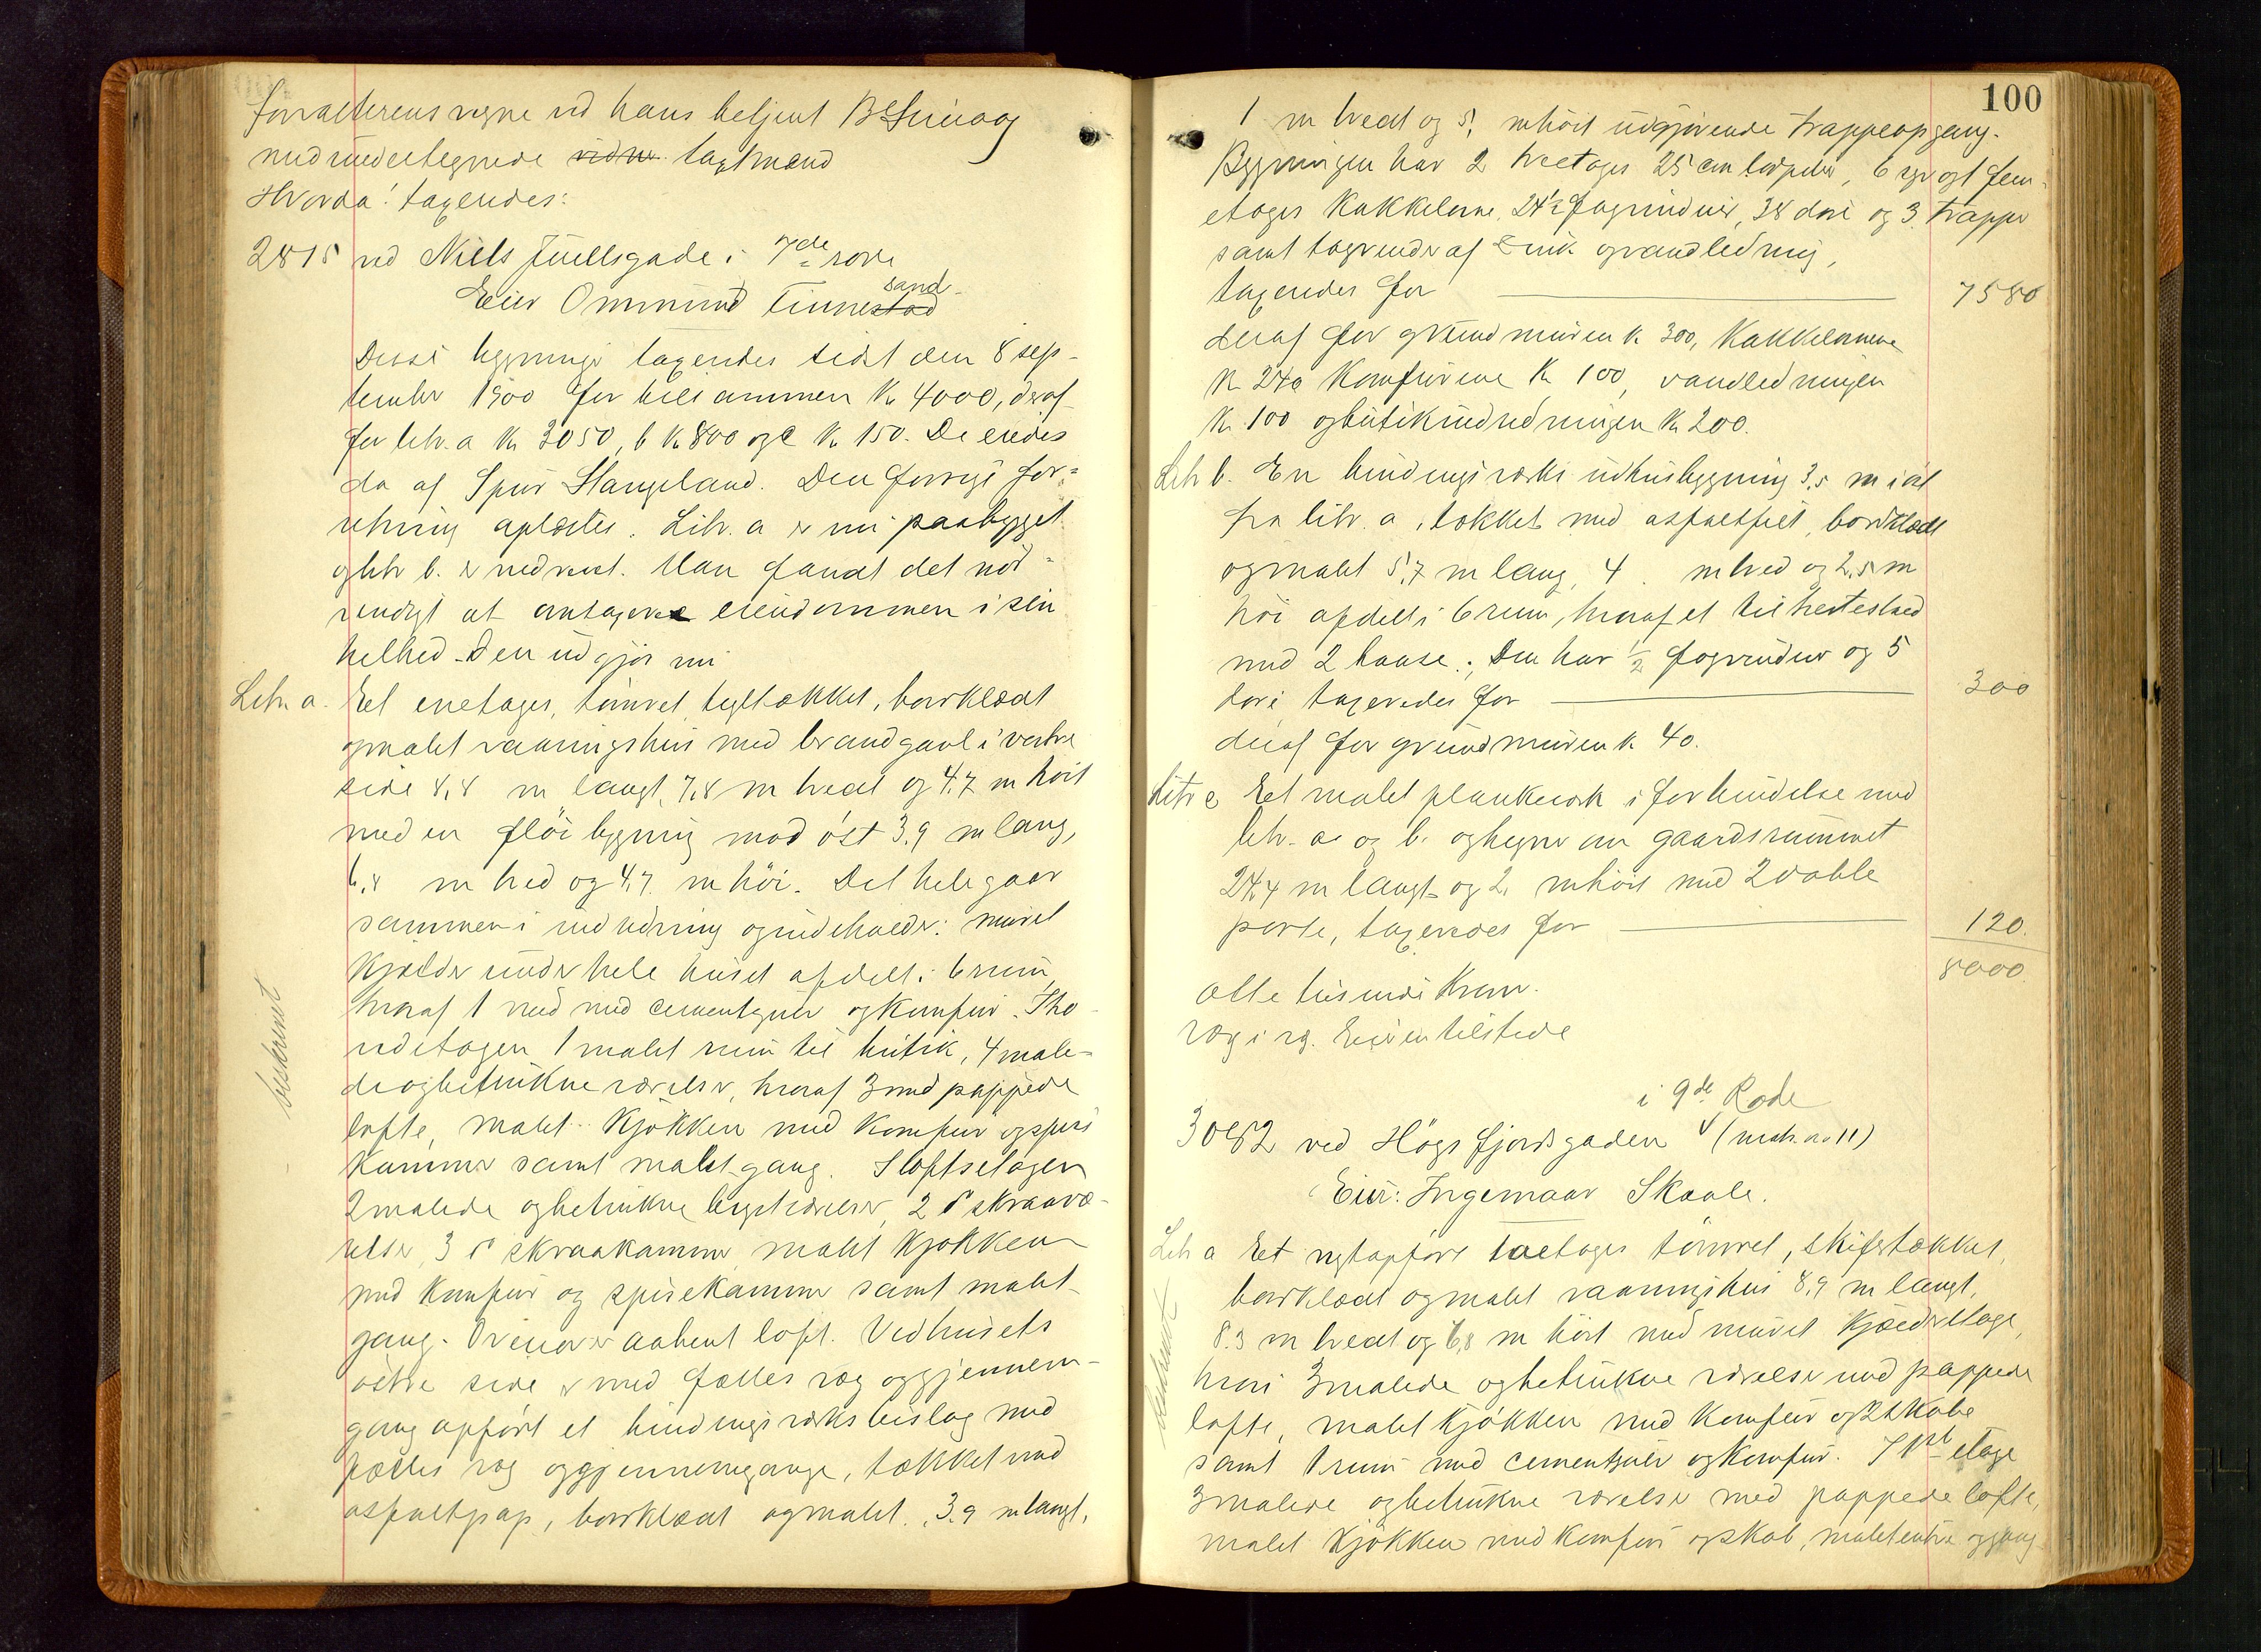 forvalterens vegne ved hans betjent B. Smi og
med undertegnede vidne taxtmænd
Hvorda: taxeredes:
2815 ved Niels Juellsgade i 7de rode
Eier Ommund Tinnestad sand
Disse bygninger taxeredes sidst den 8 sep-
tember 1900 for tilsammen Kr 4000, deraf
for litr. a Kr 3050, b Kr 800 og c Kr 150. De eiedes
da af Stangeland. Den forrige for-
retning oplæstes. Litr. a er nu paabygget
og litr b. er nedrevet. Man fandt det nød-
vendigt at omtaxere eiendommen i sin
helhed. Den udgjør nu
Litr. a. Et enetages, tømret tegltækket, bordklædt
og malet vaaningshus med brandgavl i vestre
side 8,8 m langt, 7,8 m bredt og 4,7 m høit
med en fløi bygning mod øst 3,9 m lang,
6,8 m bred og 4,7 m høi. Det hele gaar
sammen i indredning og indeholder: muret
kjælder under hele huset afdelt i 6 rum,
hvoraf 1 rum med cementgulv og komfur. I ho-
vedetagen 1 malet rum til butik, 4 male-
de og betrukne værelser, hvoraf 3 med pappede
lofte, malet kjøkken med komfur og spise
kammer samt malet gang. I loftsetagen
2 malede og betrukne kvistværelser, 2 do skraavæ-
relser, 3 do skraakammer malet kjøkken
med komfur og spisekammer samt malet
gang. Ovenover aabent loft. Ved husets
østre side er med fælles væg og gjennem-
gang opført et bindingsværks bislag med
fælles væg og gjennemgange, tækket med
asfaltpap, bordklædt og malet. 3,9 m langt,
beskrevet
100
1 m bredt og 5, m høit udgjørende trappeopgang.
Bygningen har 2 treetages 25 cm piber, 6 og et fem-
etages kakkelovne, 24½ fag vinduer, 38 døre og 3 trapper
samt tagrender af zink og vandledning,
taxeredes for 7580
deraf for grundmuren k 300, Kakkelovnene
kr 240 Komfurene Kr 100, vandledningen
kr 100 og butikindredningen kr 200.
Litr b. En bindingsværks udhusbygning 3,5 m i øst
fra litr. a, tækket med asfaltfilt, bordklædt
og malet 5,7 m lang, 4. m bred og 2,5 m
høi afdelt i 6 rum, hvoraf et til hestestald
med 2 baase; Den har ½ fag vinduer og 5
døre taxeredes for 300
deraf for grundmuren k 40.
Litr c Et malet plankeverk i forbindelse med
litr. a og b. og hegner om gaardsrummet
24,4 m langt og 2. m høit med 2 doble
porte, taxeredes for 120.
8000
otte tusende kroner.
væg i væg. Eieren tilstede
i 9de Rode
3082 ved Høgsfjordgaden (matr. no 11)
Eier: Ingemaar Skaale.
Litr a Et nytopført toetages tømret, skifertækket,
bordklædt og malet vaaningshus 8,9 m langt,
8.3 m bredt og 6,8 m høit med muret kjælderetage,
hvori 3 malede og betrukne værelser med pappede
lofte, malet kjøkken med komfur og 2 skabe
samt 1 rum med cementgulv og komfur. I 1ste etage
3 malede og betrukne værelser med pappede lofte,
malet kjøkken med komfur og skab, malet entre og gang
beskrevet